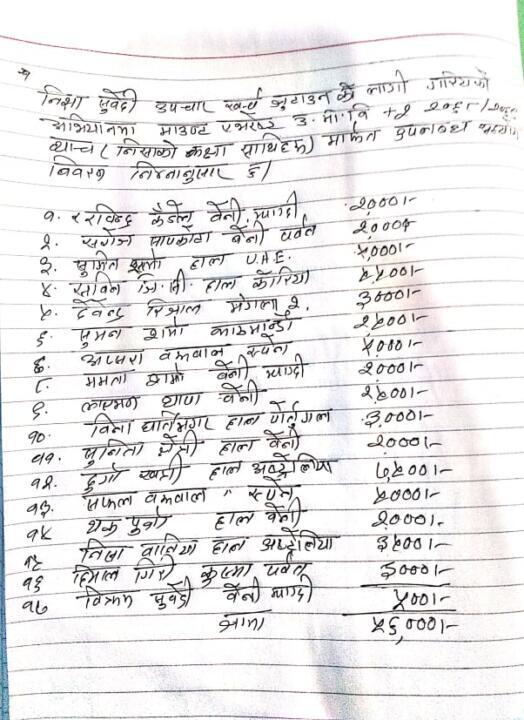 निशा सुवेदी उपचार खर्च जुटाउन को लागी गरिएको
अभियानमा माउण्ट एभरेष्ट उ.मा.वि +२ २०६८/२०६९
ब्याच (निसाको कक्षा साथिहरू) मार्फत उपलब्ध सहयोग
विवरण निम्नानुसार छ।
१. रविन्द्र कँडेल बेनी, म्याग्दी २०००।-
२. सरोज सापकोटा बेनी पर्वत २०००।-
३. सुमित हाल U.A.E. ५०००।-
४. सविन जि.सी. हाल कोरिया ५५००।-
५. देवेन्द्र रिजाल मंगला २. ३०००।-
६. सुमन शर्मा काठमाण्डौ २५००।-
७. अप्सरा स्पेन ५०००।-
८. ममता शर्मा बेनी म्याग्दी २०००।-
९. लक्ष्मण थापा बेनी २५००।-
१०. विना घर्तिमगर हाल पोर्तुगल ३०००।-
११. सुनिता हाल बेनी २०००।-
१२. दुर्गा खत्री हाल अष्ट्रेलिया ७५००।-
१३. सफल " स्पेन ५०००।-
१४ हाल बेनी २०००।-
१५ हाल अष्ट्रेलिया ३५००।-
१६ हिमाल गिरी कुश्मा पर्वत ३०००।-
१७ विक्रम सुवेदी बेनी म्याग्दी ५००।-
जम्मा ५६,०००।-